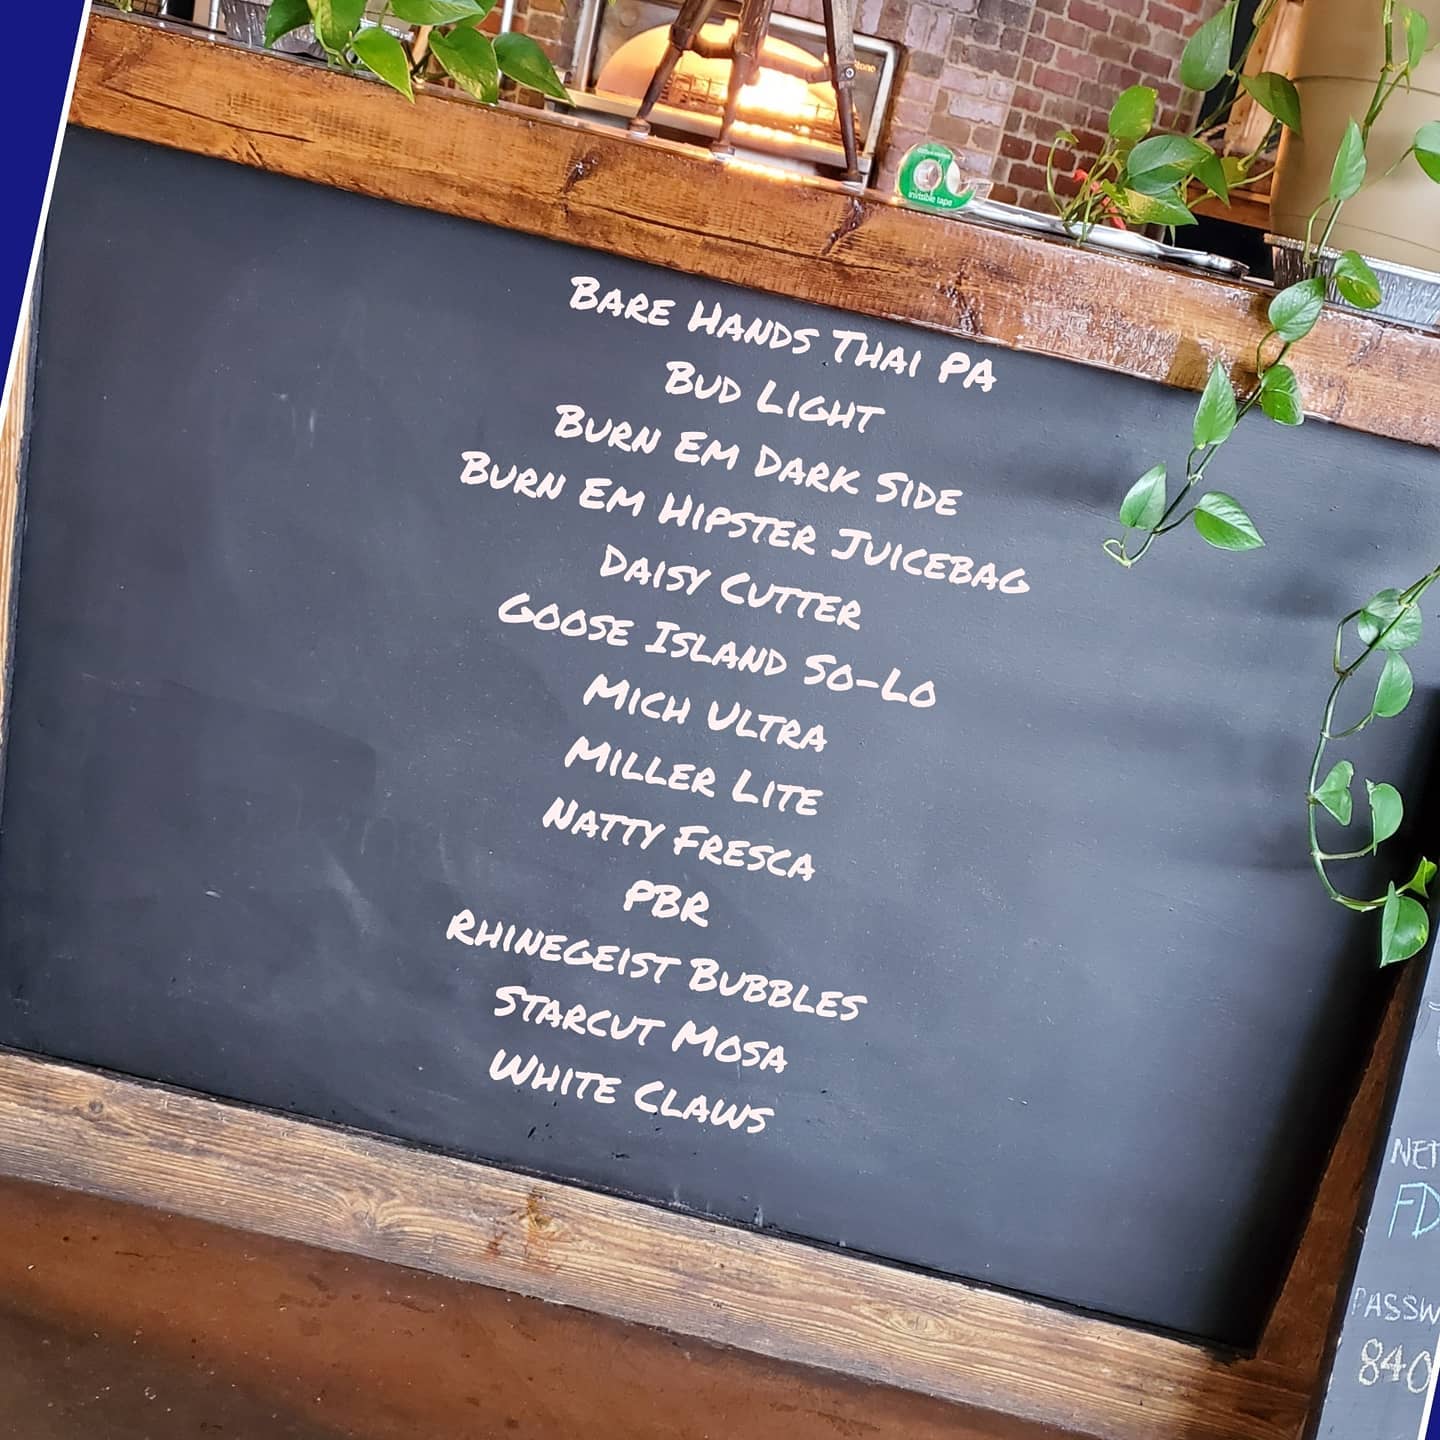 invisible tape
Bare Hands Thai PA
Bud Light
Burn Em Dark Side
Burn Em Hipster Juicebag
Daisy Cutter
Goose Island So-Lo
Mich Ultra
Miller Lite
Natty Fresca
PBR
Rhinegeist Bubbles
Starcut Mosa
White Claws
NET
FD
PASSW
840